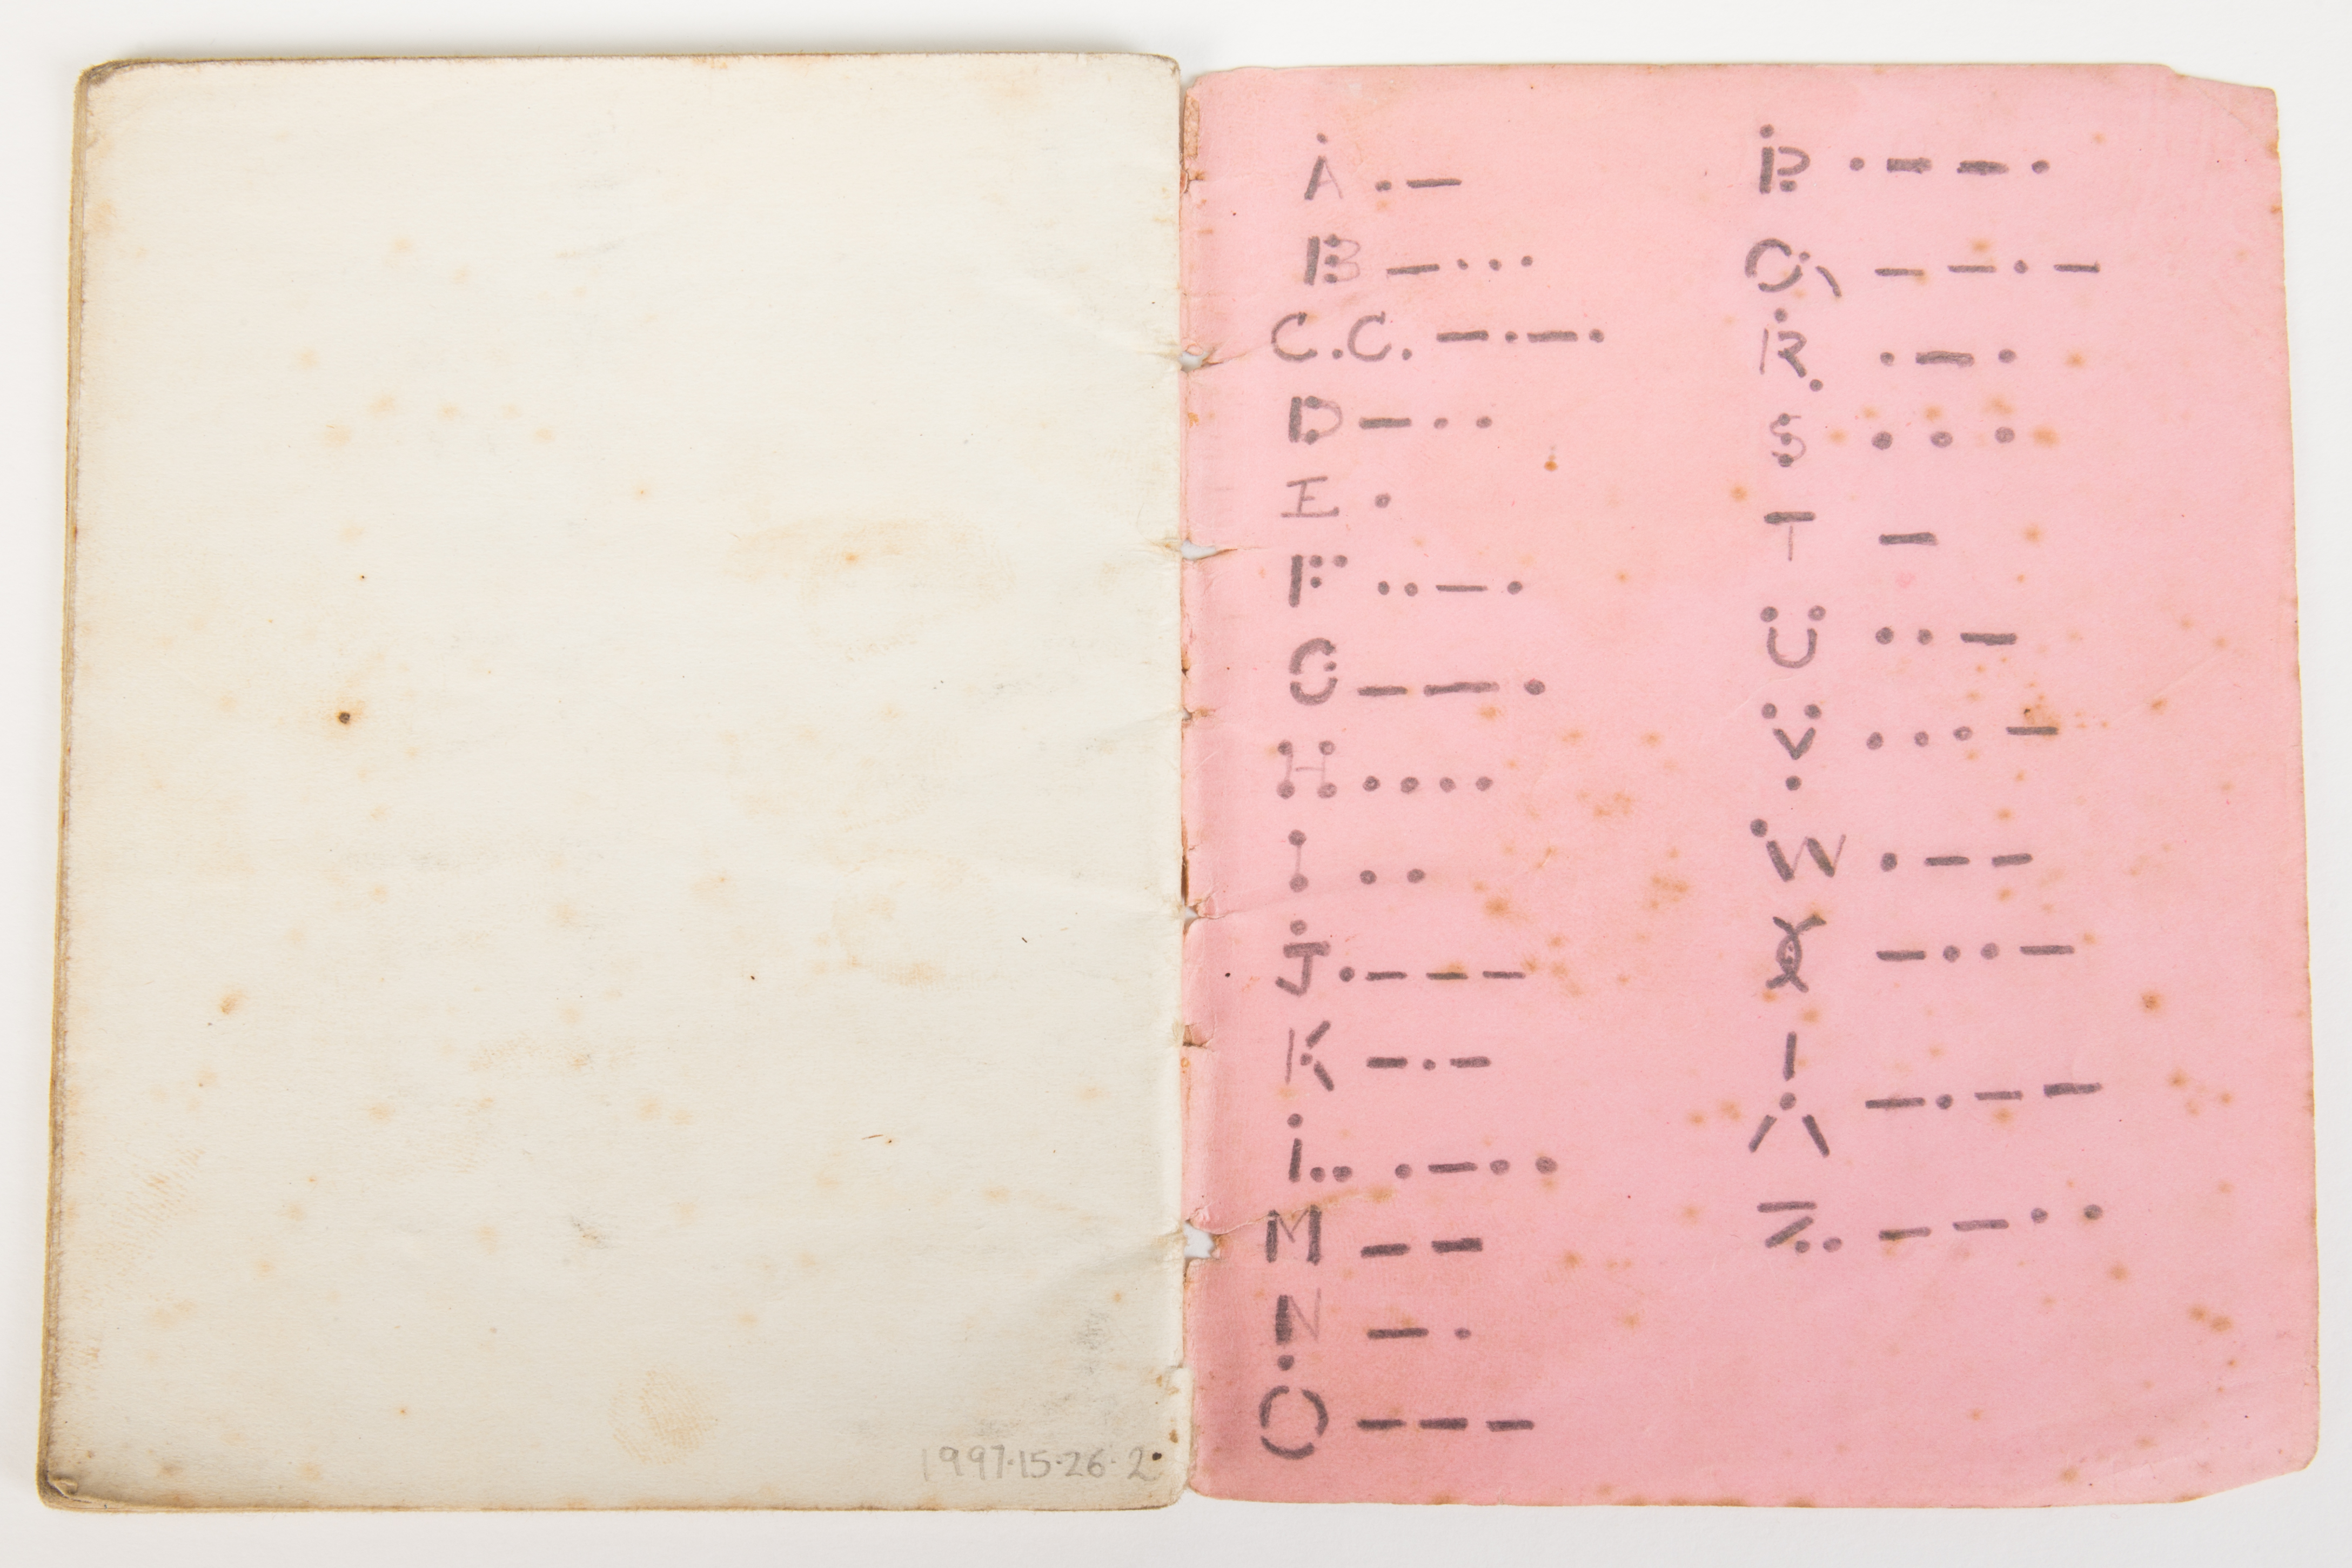 1997.15.26.2
A .–
B –...
C.C. –.–.
D –..
E .
F ..–.
G ––.
H ....
I ..
J .–––
K –.–
L .–..
M ––
N –.
O –––
P .––.
Q ––.–
R .–.
S ...
T –
U ..–
V ...–
W .––
X –..–
Y –.––
Z ––..